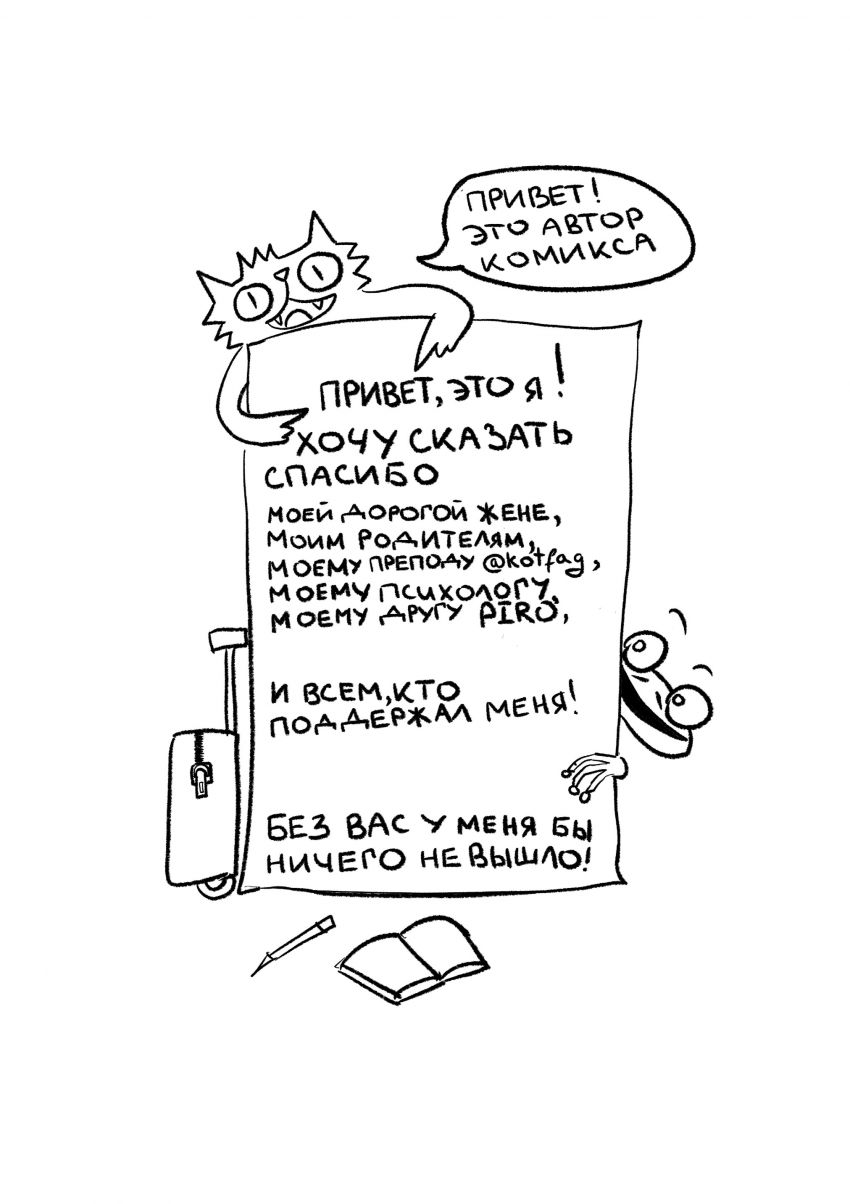 ПРИВЕТ!
ЭТО АВТОР
КОМИКСА
ПРИВЕТ, ЭТО Я!
ХОЧУ СКАЗАТЬ
СПАСИБО
МОЕЙ ДОРОГОЙ ЖЕНЕ,
МОИМ РОДИТЕЛЯМ,
МОЕМУ ПРЕПОДУ @kotfag,
МОЕМУ ПСИХОЛОГУ,
МОЕМУ ДРУГУ PIRO,
И ВСЕМ, КТО
ПОДДЕРЖАЛ МЕНЯ!
БЕЗ ВАС У МЕНЯ БЫ
НИЧЕГО НЕ ВЫШЛО!